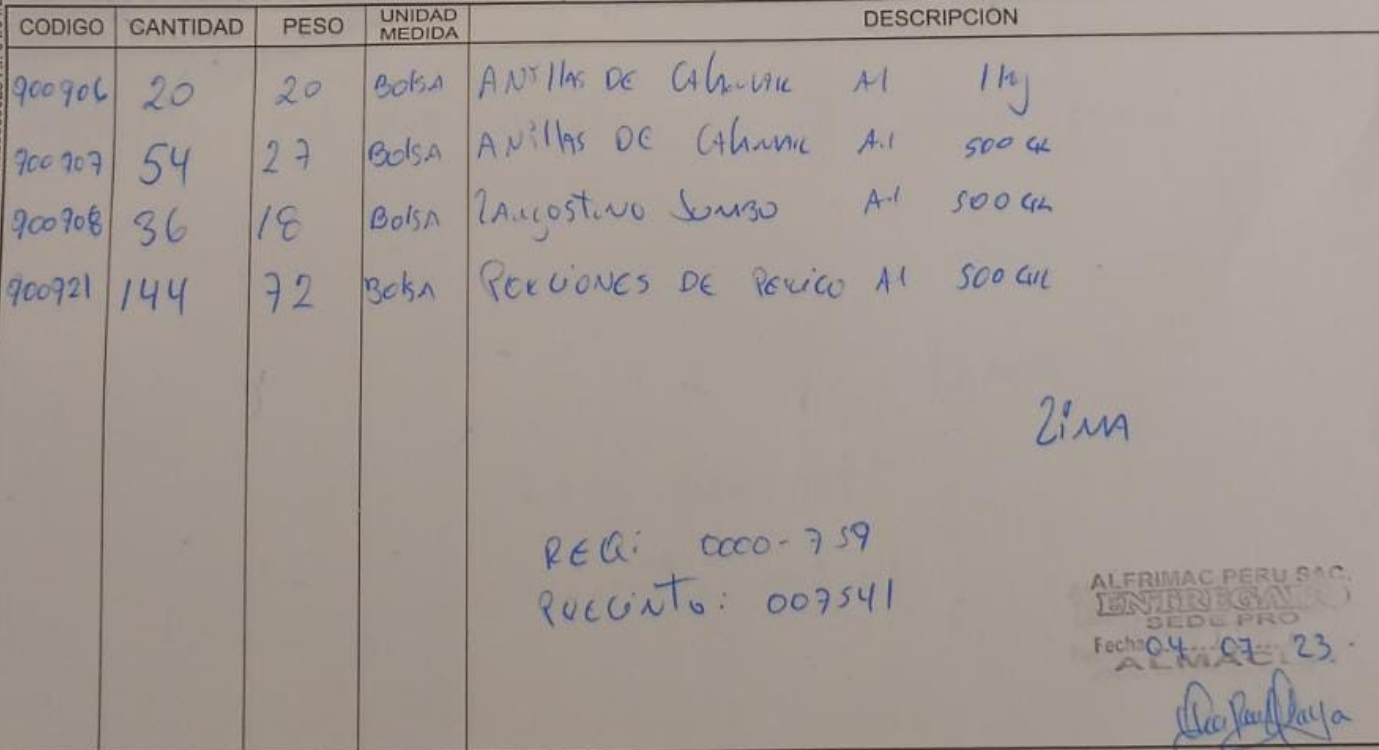 CODIGO CANTIDAD PESO UNIDAD MEDIDA DESCRIPCION
900906 20 20 Bolsa ANillas DE CALAMAR A1 1kg
900907 54 27 Bolsa ANillas DE CALAMAR A.1 500 GR
900908 36 18 Bolsa LANGOSTINO JUMBO A-1 500 GR
900921 144 72 Bolsa PORCIONES DE PERICO A1 500 GR
LiMA
REQ: 0000-759
PRECINTO: 007541
ALFRIMAC PERU SAC.
ENTREGADO
SEDE PRO
Fecha 04 07 23